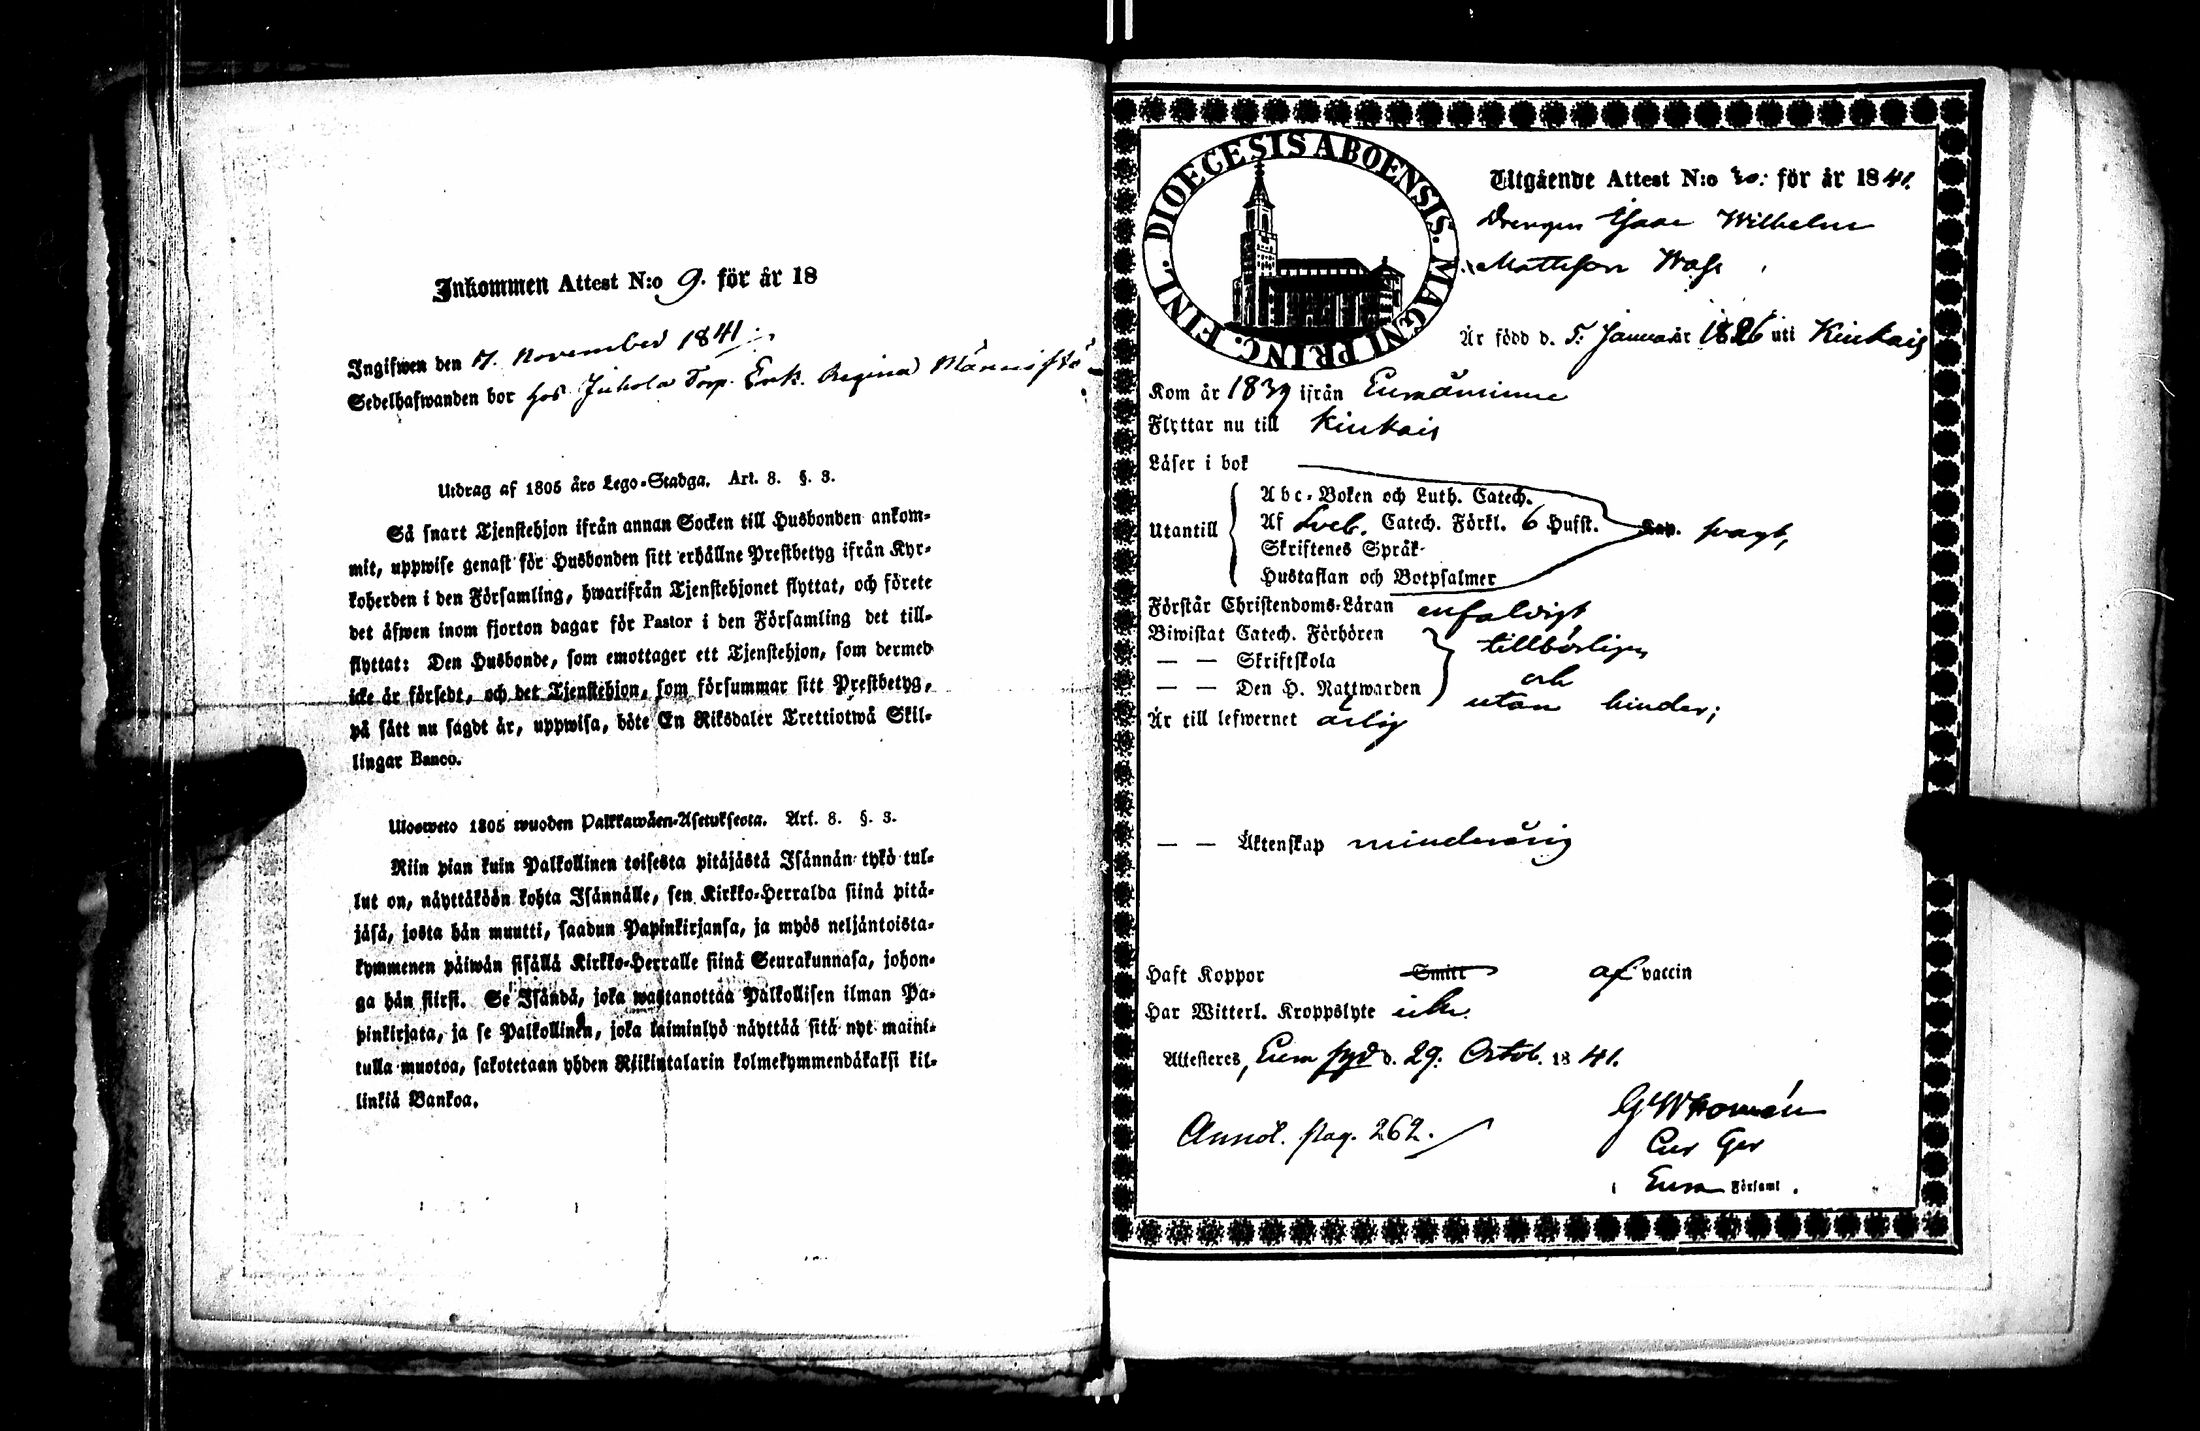 Inkommen Attest N:o 9. för år 18
Ingifwen den 7. November 1841.
Sedelhafwanden bor hos Juhola Torp. Enk. Regina Männistö
Utdrag af 1805 års Lego-Stadga. Art. 8. §. 3.
Så snart Tjenstehjon ifrån annan Socken till Husbonden ankom-
mit, uppwise genast för Husbonden sitt erhållne Prestbetyg ifrån Kyr-
koherden i den Församling, hwarifrån Tjenstehjonet flyttat, och förete
det äfwen inom fjorton dagar för Pastor i den Församling det till-
flyttat: Den Husbonde, som emottager ett Tjenstehjon, som dermed
icke är försedt, och det Tjenstehjon, som försummar sitt Prestbetyg,
på sätt nu sagdt är, uppwisa, böte En Riksdaler Trettiotwå Skil-
lingar Banco.
Ulosweto 1805 wuoden Palkkawäen-Asetuksesta. Art. 8. §. 3.
Niin pian kuin Palkollinen toisesta pitäjästä Isännän tykö tul-
lut on, näyttäköön kohta Isännälle, sen Kirkko-Herralda siinä pitä-
jäsä, josta hän muutti, saadun Papinkirjansa, ja myös neljäntoista-
kymmenen päiwän sisällä Kirkko-Herralle siinä Seurakunnasa, johon-
ga hän siirsi. Se Isändä, joka wastanottaa Palkollisen ilman Pa-
pinkirjata, ja se Palkollinen, joka laiminlyö näyttää sitä nyt maini-
tulla muotoa, sakotetaan yhden Riikintalarin kolmekymmendäkaksi kil-
linkiä Bankoa.
DIOECESIS ABOENSIS. MAGNI PRINC. FINL.
Utgående Attest N:o 20. för år 1841.
Drengen Isaac Wilhelm
Mattsson Wass
Är född d. 5. Januar år 1826 uti Kiukais
Kom år 1839 ifrån Euraåminne
Flyttar nu till Kiukais
Läser i bok
Utantill
Abc-Boken och Luth. Catech.
Af Sveb. Catech. Förkl. 6 Hufst. Cap. svagt,
Skriftenes Språk
Hustaflan och Botpsalmer
Förstår Christendoms-Läran enfaldigt
Biwistat Catech. Förhören tillbörligen
— — Skriftskola och
— — Den H. Nattwarden utan hinder;
Är till lefwernet ärlig
— — Äktenskap minderårig
Haft Koppor Smitt af vaccin
Har Witterl. Kroppslyte icke.
Attesteres, Eura d. 29. Octob. 1841.
Annot. pag. 262.
Eura Församl.